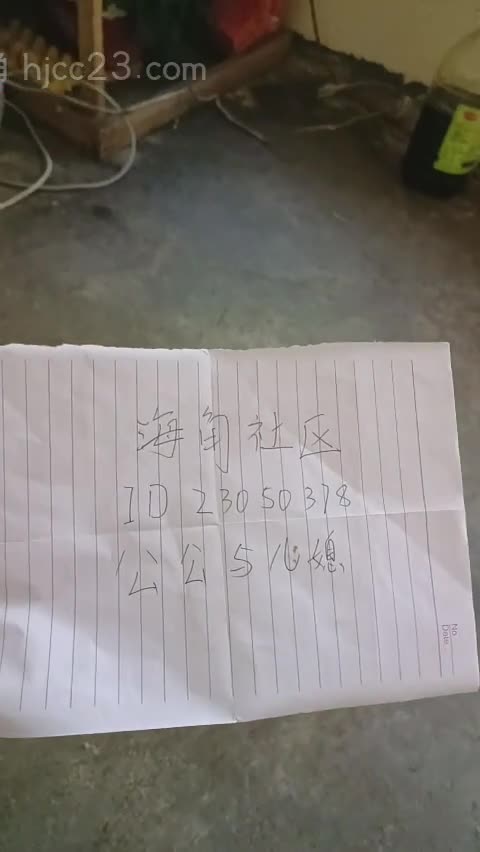 hjcc23.com
海角社区
ID 23050378
公公与儿媳
No.
Date